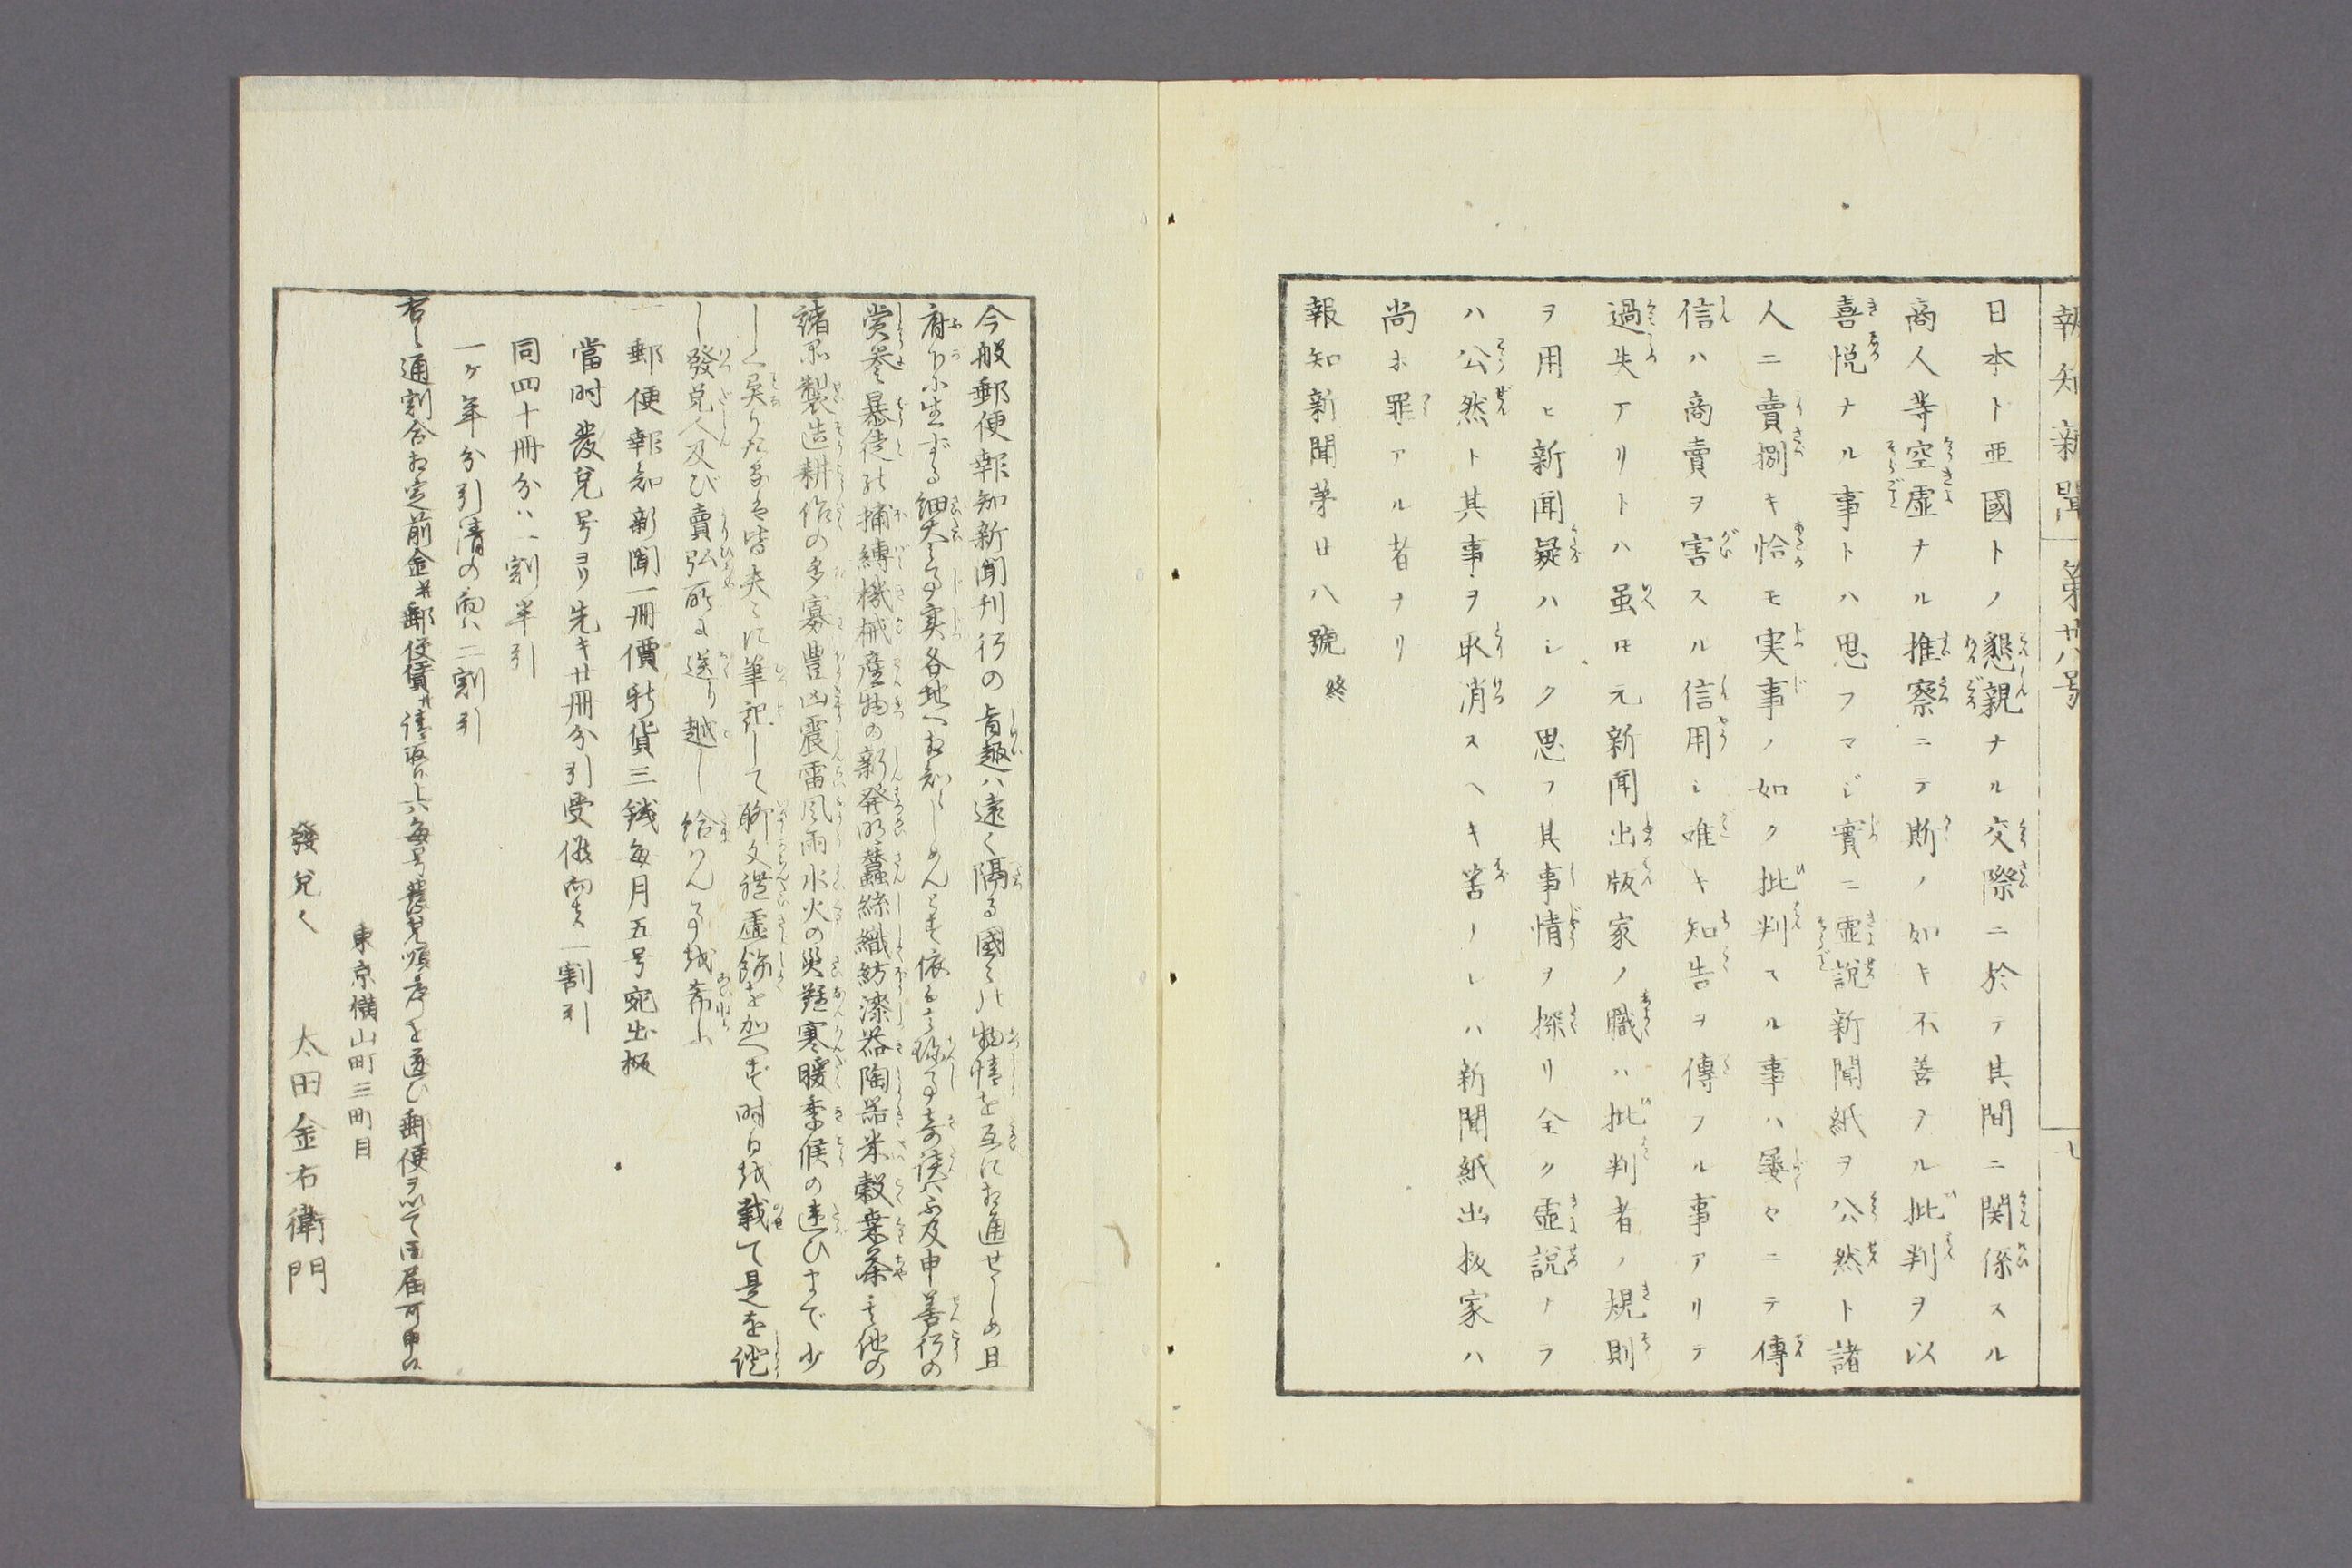 報知新聞 第廿八号 七
日本ト亜國トノ懇親ナル交際ニ於テ其間ニ関係スル
商人等空虚ナル推察ニテ斯ノ如キ不善ナル批判ヲ以
喜悦ナル事トハ思フマジ實ニ虚説新聞紙ヲ公然ト諸
人ニ賣捌キ恰モ実事ノ如ク批判スル事ハ屡々ニテ傳
信ハ商賣ヲ害スル信用シ唯キ知告ヲ傳フル事アリテ
過失アリトハ虽𪜈元新聞出版家ノ職ハ批判者ノ規則
ヲ用ヒ新聞疑ハシク思フ其事情ヲ探リ全ク虚説ナラ
ハ公然ト其事ヲ取消スヘキ筈ナレハ新聞紙出板家ハ
尚ホ罪アル者ナリ
報知新聞第廿八號 終
今般郵便報知新聞刊行の旨趣ハ遠く隔る國々の物情を互に相通せしめ且
府下に生ずる細大の事実各地へ相知らしめんとす依ては珍事奇談ハ不及申善行の
賞誉暴徒の捕縛機械産物の新発明蠶絲織紡漆器陶器米穀桑茶其他の
諸品製造耕作の多寡豊凶震雷風雨水火の災難寒暖季候の違ひまで少
しく異りたる事は皆夫々に筆記して聊文詞虚飾を加へず時日を載て是を證
し發兌人及び賣弘所に送り越し給はん事を希ふ
一郵便報知新聞一冊價新貨三錢毎月五号宛出板
當时發兌号ヨリ先キ廿冊分引受候向は一割引
同四十冊分ハ一割半引
一ヶ年分引請の向ハ二割引
右之通割合相定前金并郵便賃共請取候上ハ毎号發兌順序を逐ひ郵便ヲ以て御届可申候
東京横山町三町目
發兌人 太田金右衛門